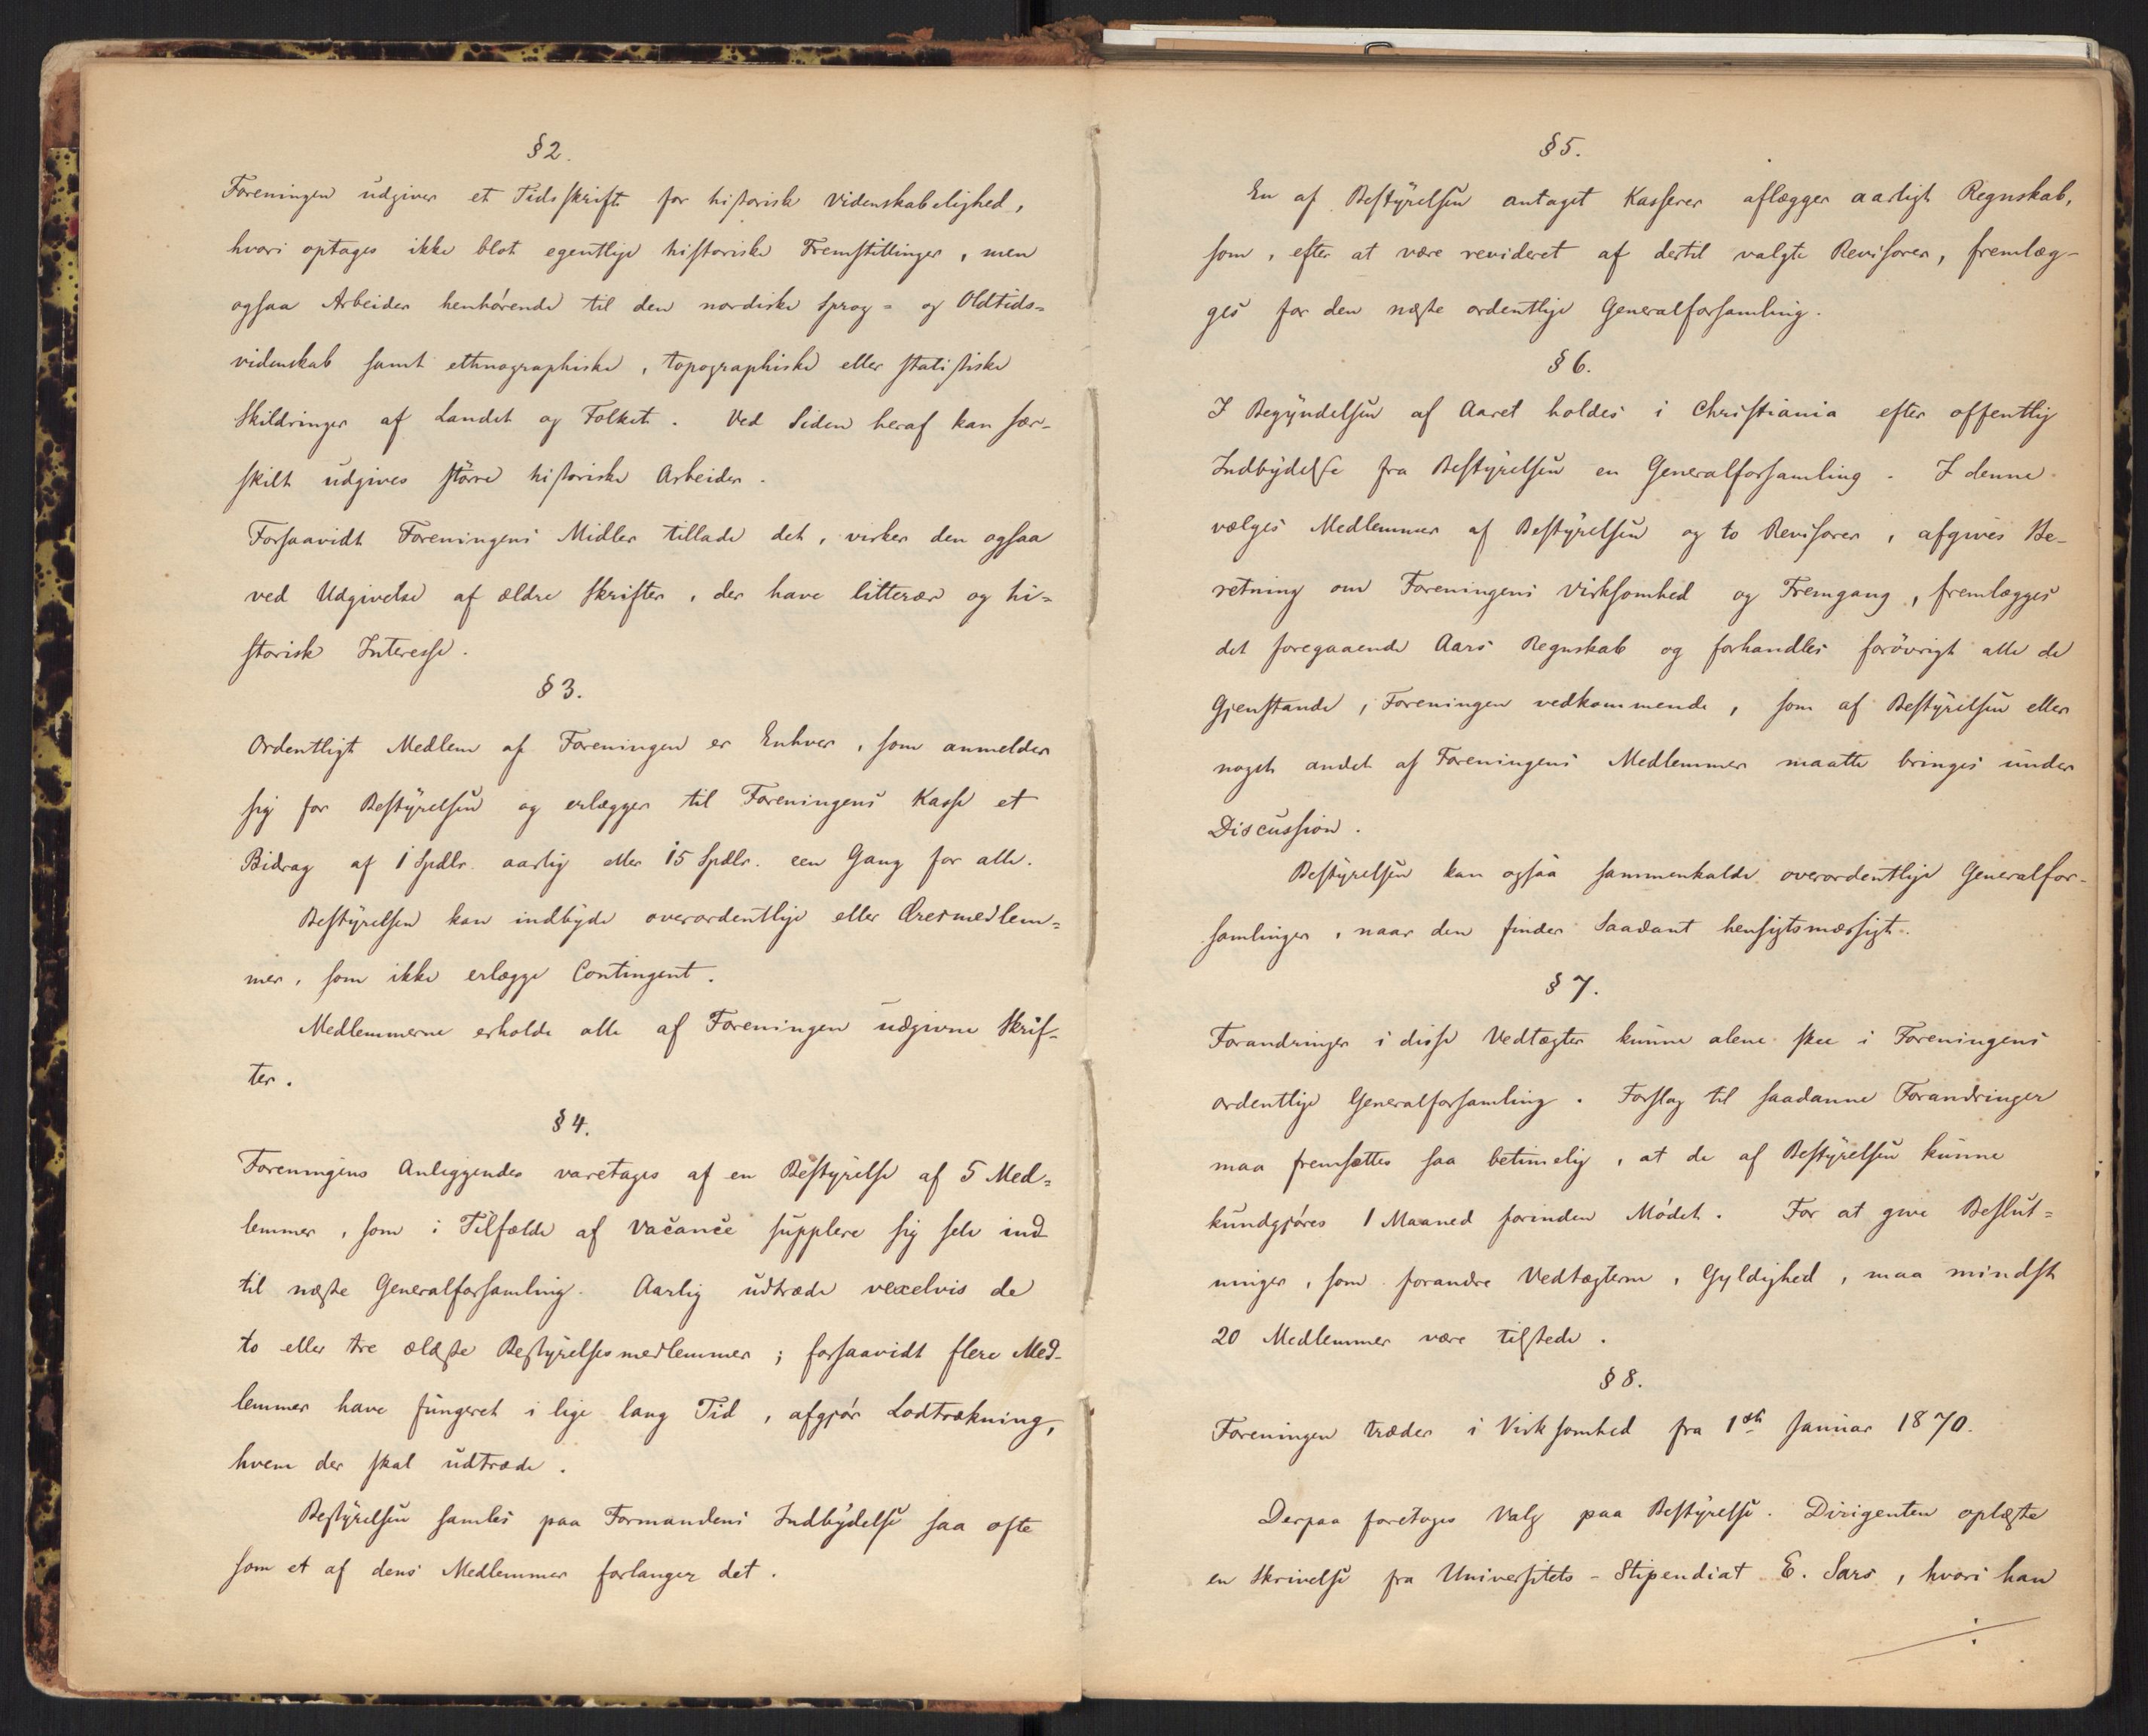 § 2.
Foreningen udgiver et Tidsskrift for historisk Videnskabelighed,
hvori optages ikke blot egentlige historiske Fremstillinger, men
ogsaa Arbeider henhørende til den nordiske Sprog- og Oldtids-
videnskab samt ethnographiske, topographiske eller statistiske
Skildringer af Landet og Folket. Ved Siden heraf kan sær-
skilt udgives større historiske Arbeider.
Forsaavidt Foreningens Midler tillade det, virker den ogsaa
ved Udgivelse af ældre Skrifter, der have litterær og hi-
storisk Interesse.
§ 3.
Ordentligt Medlem af Foreningen er Enhver, som anmelder
sig for Bestyrelsen og erlægger til Foreningens Kasse et
Bidrag af 1 Spdlr. aarlig eller 15 Spdlr. een Gang for alle.
Bestyrelsen kan indbyde overordentlige eller Æresmedlem-
mer, som ikke erlægge Contingent.
Medlemmerne erholde alle af Foreningen udgivne Skrif-
ter.
§ 4.
Foreningens Anliggender varetages af en Bestyrelse af 5 Med-
lemmer, som i Tilfælde af Vacance supplere sig selv ind
til næste Generalforsamling. Aarlig udtræde vexelvis de
to eller tre ældste Bestyrelsesmedlemmer; forsaavidt flere Med-
lemmer have fungeret i lige lang Tid, afgjør Lodtrækning,
hvem der skal udtræde.
Bestyrelsen samles paa Formandens Indbydelse saa ofte
som et af dens Medlemmer forlanger det.
§ 5.
En af Bestyrelsen antaget Kasserer aflægger aarligt Regnskab,
som, efter at være revideret af dertil valgte Revisorer, fremlæg-
ges for den næste ordentlige Generalforsamling.
§ 6.
I Begyndelsen af Aaret holdes i Christiania efter offentlig
Indbydelse fra Bestyrelsen en Generalforsamling. I denne
vælges Medlemmer af Bestyrelsen og to Revisorer, afgives Be-
retning om Foreningens Virksomhed og Fremgang, fremlægges
det foregaaende Aars Regnskab og forhandles forøvrigt alle de
Gjenstande, Foreningen vedkommende, som af Bestyrelsen eller
noget andet af Foreningens Medlemmer maatte bringes under
Discussion.
Bestyrelsen kan ogsaa sammenkalde overordentlige Generalfor-
samlinger, naar den finder Saadant hensigtsmæssigt.
§ 7.
Forandringer i disse Vedtægter kunne alene skee i Foreningens
ordentlige Generalforsamling. Forslag til saadanne Forandringer
maa fremsættes saa betimelig, at de af Bestyrelsen kunne
kundgjøres 1 Maaned forinden Mødet. For at give Beslut-
ninger, som forandre Vedtægterne, Gyldighed, maa mindst
20 Medlemmer være tilstede.
§ 8.
Foreningen træder i Virksomhed fra 1ste Januar 1870.
Derpaa foretoges Valg paa Bestyrelse. Dirigenten oplæste
en Skrivelse fra Universitets-Stipendiat E. Sars, hvori han